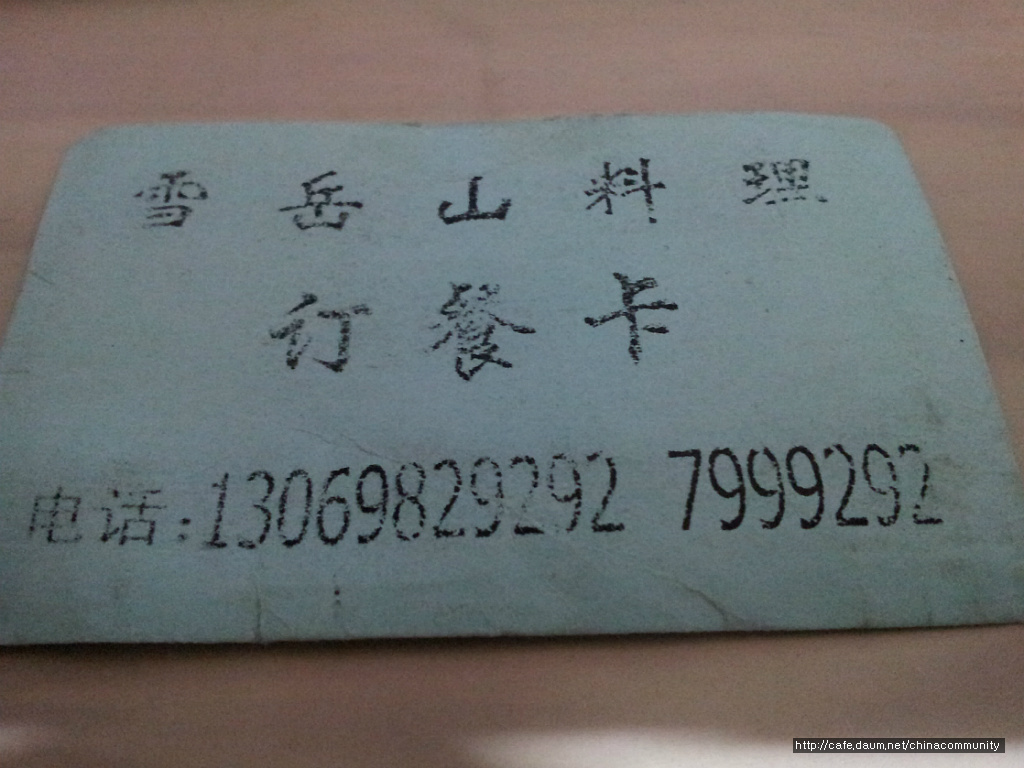 雪岳山料理
订餐卡
电话:13069829292 7999292
http://cafe.daum.net/chinacommunity